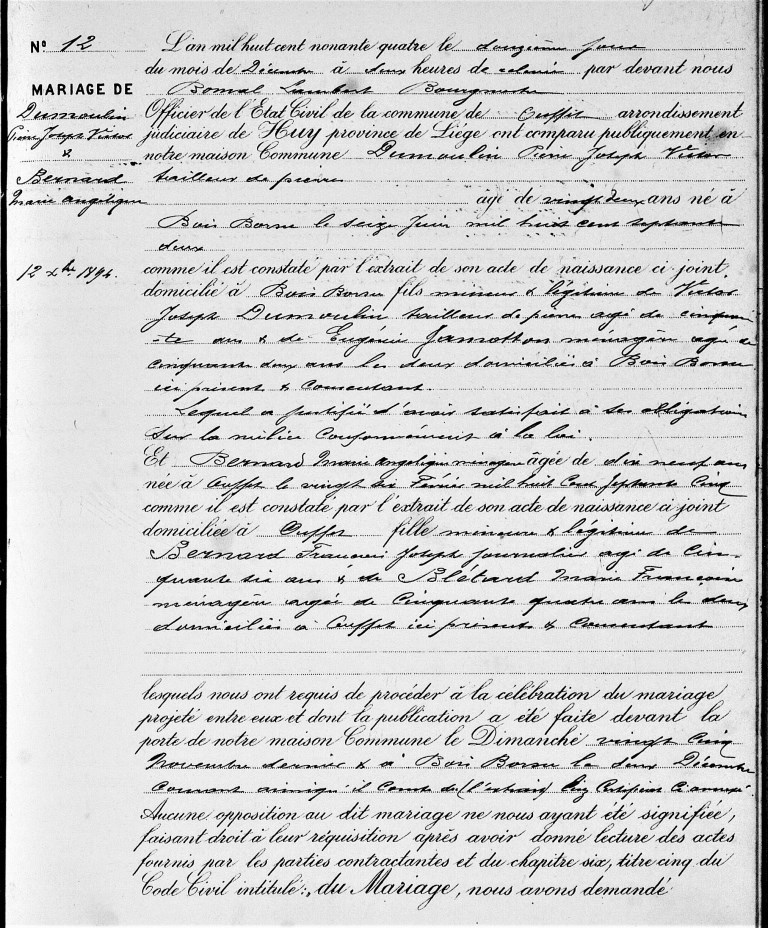 N° 12
MARIAGE DE
Dumoulin
Pierre Joseph Victor
&
Bernard
Marie angélique
12 xbre 1894.
L'an mil huit cent nonante quatre le douzième jour
du mois de Décembre à deux heures de relevée par devant nous
Bomal Lambert Bourgmestre
Officier de l'Etat Civil de la commune de Ouffet arrondissement
judiciaire de Huy province de Liége ont comparu publiquement en
notre maison Commune Dumoulin Pierre Joseph Victor
tailleur de pierres
âgé de vingt deux ans né à
Bois Borsu le seize Juin mil huit cent septante
deux
comme il est constaté par l'extrait de son acte de naissance ci-joint,
domicilié à Bois Borsu fils mineur & légitime de Victor
Joseph Dumoulin tailleur de pierres agé de cinquan-
te ans & de Eugénie Jamotton ménagère agée de
cinquante deux ans les deux domiciliés à Bois Borsu
ici présent & Consentant
Lequel a justifié d'avoir satisfait à ses obligations
sur la milice Conformément à la loi.
Et Bernard Marie angélique ménagère âgée de dix neuf ans
née à Ouffet le vingt six Février mil huit Cent Septante Cinq
comme il est constaté par l'extrait de son acte de naissance ci-joint
domiciliée à Ouffet fille mineure & légitime de
Bernard Francois Joseph Journalier agé de Cin-
quante six ans & de Blétard Marie Françoise
ménagère agée de Cinquante quatre ans les deux
domiciliés à Ouffet ici présents & Consentant
lesquels nous ont requis de procéder à la célébration du mariage
projeté entre eux et dont la publication a été faite devant la
porte de notre maison Commune le Dimanche vingt Cinq
Novembre dernier & à Bois Borsu le deux Décembre
Courant ainsi qu'il Conste de (l'extrait) Certificat Ci annexé.
Aucune opposition au dit mariage ne nous ayant été signifiée,
faisant droit à leur réquisition après avoir donné lecture des actes
fournis par les parties contractantes et du chapitre six, titre cinq du
Code Civil intitulé: du Mariage, nous avons demandé